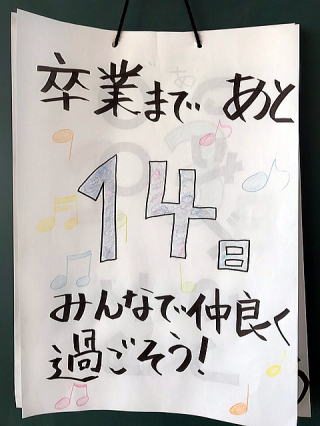 卒業まで あと
14日
みんなで仲良く
過ごそう!